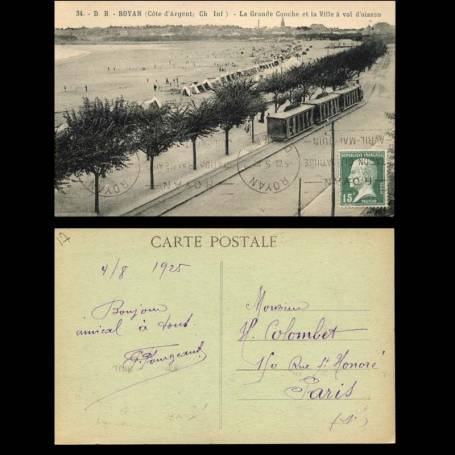 34. - D. R. - ROYAN (Côte d'Argent; Ch Inf) - La Grande Conche et la Ville à vol d'oiseau
AVRIL-MAI-JUIN
ROYAN
ROYAN
RÉPUBLIQUE FRANÇAISE
15
17
CARTE POSTALE
4/8 1925
Bonjour
amical à tout.
Monsieur
H. Colombet
150 Rue St Honoré
Paris